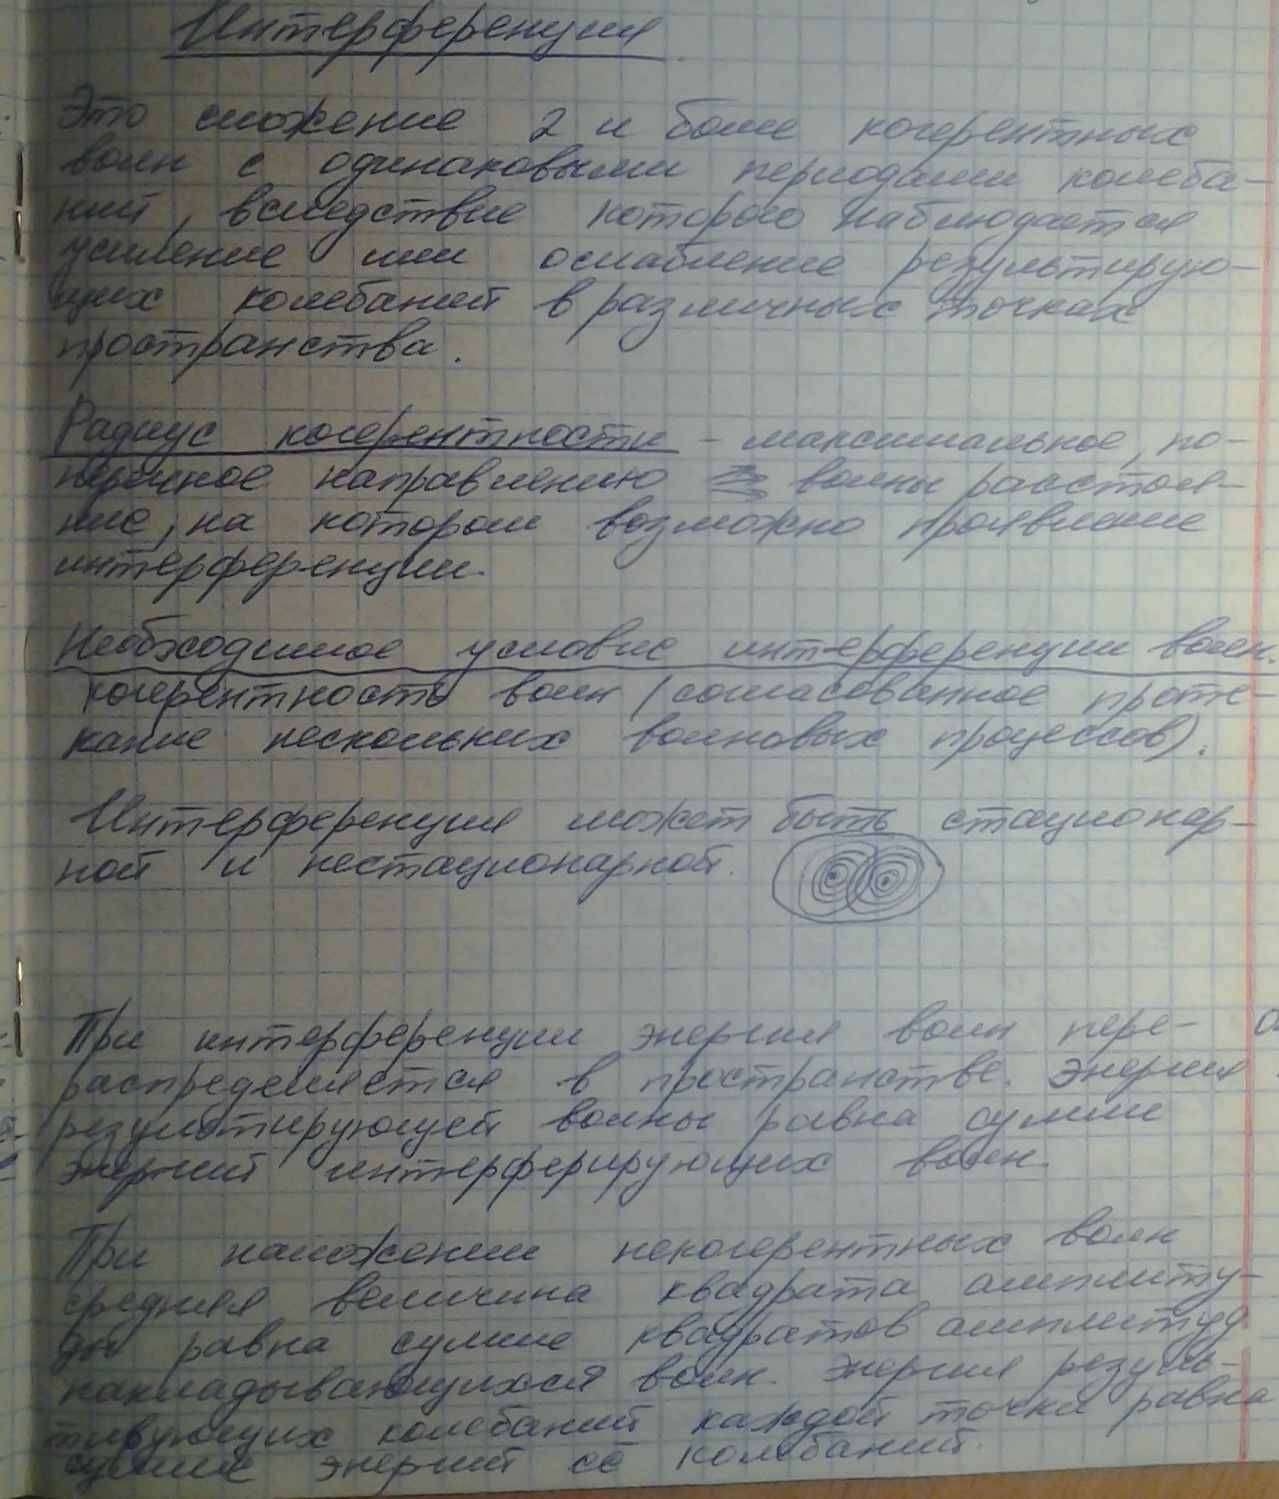 Интерференция
Это сложение 2 и более когерентных
волн с одинаковыми периодами колеба-
ний, вследствие которого наблюдается
усиление или ослабление результирую-
щих колебаний в различных точках
пространства.
Радиус когерентности – максимальное, по-
перечное направлению волны расстоя-
ние, на котором возможно проявление
интерференции.
Необходимое условие интерференции волн.
когерентность волн (согласованное проте-
кание нескольких волновых процессов).
Интерференция может быть стационар-
ной и нестационарной.
При интерференции энергия волн пере-
распределяется в пространстве. Энергия
результирующей волны равна сумме
энергий интерферирующих волн.
При наложении некогерентных волн
средняя величина квадрата амплиту-
ды равна сумме квадратов амплитуд
накладывающихся волн. Энергия резуль-
тирующих колебаний каждой точки равна
сумме энергий её колебаний.